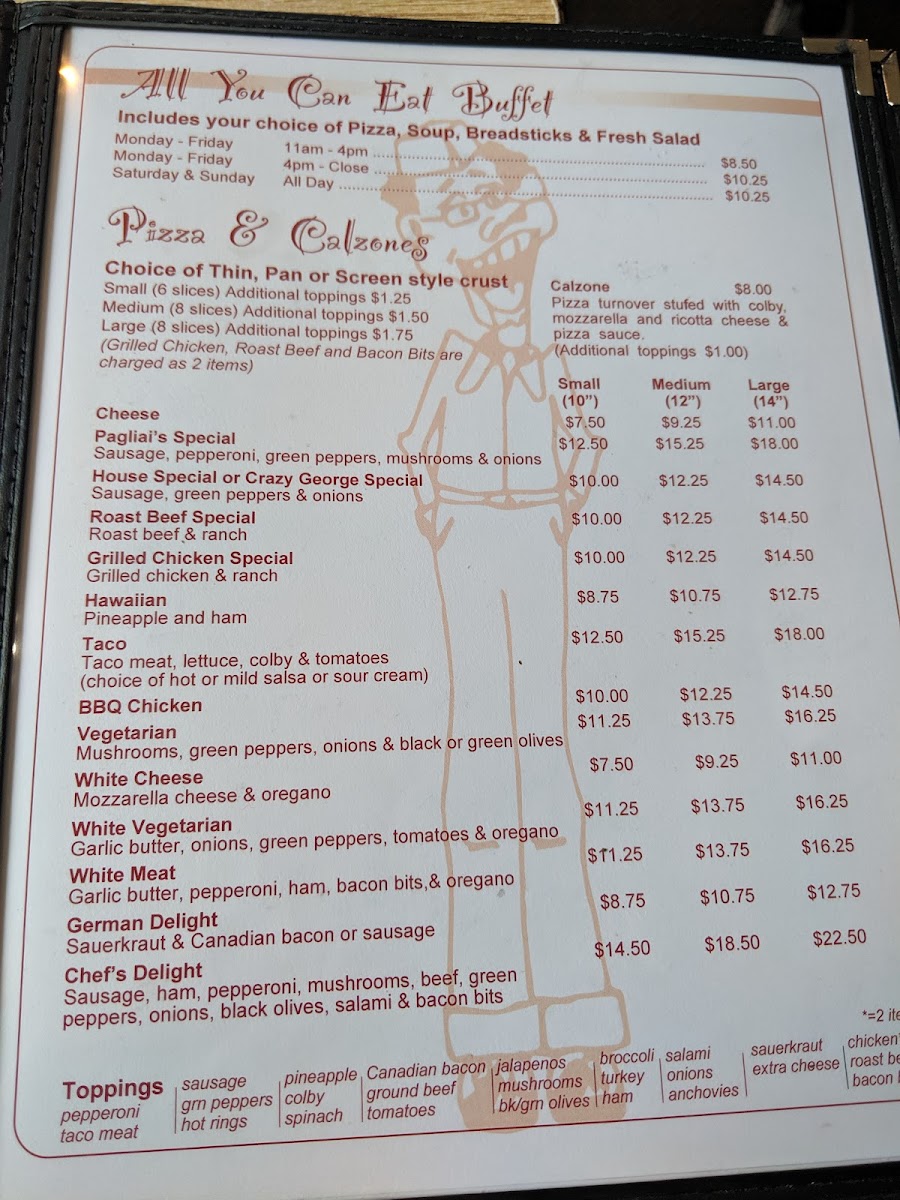 All You Can Eat Buffet
Includes your choice of Pizza, Soup, Breadsticks & Fresh Salad
Monday - Friday 11am - 4pm ........ $8.50
Monday - Friday 4pm - Close ........ $10.25
Saturday & Sunday All Day ........ $10.25
Pizza & Calzones
Choice of Thin, Pan or Screen style crust
Small (6 slices) Additional toppings $1.25
Medium (8 slices) Additional toppings $1.50
Large (8 slices) Additional toppings $1.75
(Grilled Chicken, Roast Beef and Bacon Bits are
charged as 2 items)
Calzone $8.00
Pizza turnover stufed with colby,
mozzarella and ricotta cheese &
pizza sauce.
(Additional toppings $1.00)
Small Medium Large
(10") (12") (14")
Cheese $7.50 $9.25 $11.00
Pagliai's Special $12.50 $15.25 $18.00
Sausage, pepperoni, green peppers, mushrooms & onions
House Special or Crazy George Special $10.00 $12.25 $14.50
Sausage, green peppers & onions
Roast Beef Special $10.00 $12.25 $14.50
Roast beef & ranch
Grilled Chicken Special $10.00 $12.25 $14.50
Grilled chicken & ranch
Hawaiian $8.75 $10.75 $12.75
Pineapple and ham
Taco $12.50 $15.25 $18.00
Taco meat, lettuce, colby & tomatoes
(choice of hot or mild salsa or sour cream)
BBQ Chicken $10.00 $12.25 $14.50
Vegetarian $11.25 $13.75 $16.25
Mushrooms, green peppers, onions & black or green olives
White Cheese $7.50 $9.25 $11.00
Mozzarella cheese & oregano
White Vegetarian $11.25 $13.75 $16.25
Garlic butter, onions, green peppers, tomatoes & oregano
White Meat $11.25 $13.75 $16.25
Garlic butter, pepperoni, ham, bacon bits,& oregano
German Delight $8.75 $10.75 $12.75
Sauerkraut & Canadian bacon or sausage
Chef's Delight $14.50 $18.50 $22.50
Sausage, ham, pepperoni, mushrooms, beef, green
peppers, onions, black olives, salami & bacon bits
*=2 ite
Toppings
pepperoni
taco meat
sausage
grn peppers
hot rings
pineapple
colby
spinach
Canadian bacon
ground beef
tomatoes
jalapenos
mushrooms
bk/grn olives
broccoli
turkey
ham
salami
onions
anchovies
sauerkraut
extra cheese
chicken*
roast be
bacon